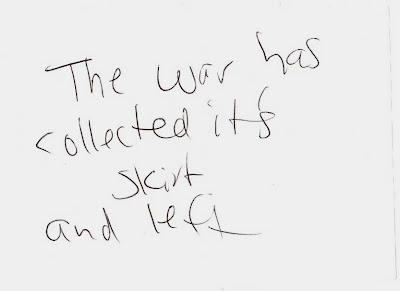 The war has
collected it's
skirt
and left